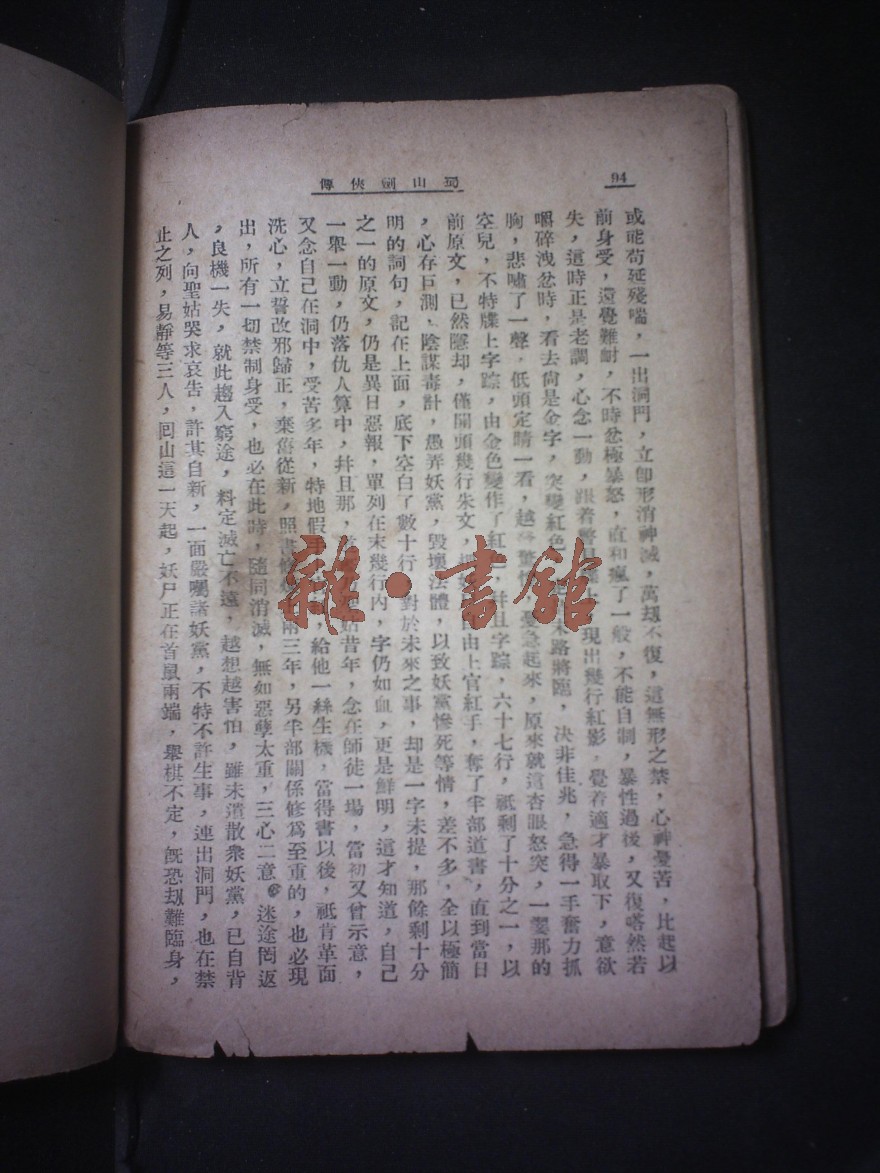 94
蜀山劍俠傳
或能苟延殘喘，一出洞門，立卽形消神滅，萬刼不復，這無形之禁，心神憂苦，比起以
前身受，還覺難耐，不時忿極暴怒，直和瘋了一般，不能自制，暴性過後，又復嗒然若
失，這時正是老調，心念一動，跟着 現出幾行紅影，覺着適才暴取下，意欲
嚼碎洩忿時，看去尙是金字，突變紅色， 末路將臨，決非佳兆，急得一手奮力抓
胸，悲嘯了一聲，低頭定睛一看，越 急起來，原來就這杏眼怒突，一霎那的
空兒，不特牒上字踪，由金色變作了紅色，幷且字踪，六十七行，祇剩了十分之一，以
前原文，已然隱却，僅開頭幾行朱文， 由上官紅手，奪了半部道書，直到當日
，心存叵測，陰謀毒計，愚弄妖黨，毀壞法體，以致妖黨慘死等情，差不多，全以極簡
明的詞句，記在上面，底下空白了數十行，對於未來之事，却是一字未提，那餘剩十分
之一的原文，仍是異日惡報，單列在末幾行內，字仍如血，更是鮮明，這才知道，自己
一舉一動，仍落仇人算中，幷且那 昔年，念在師徒一場，當初又曾示意，
又念自己在洞中，受苦多年，特地假手 給他一絲生機，當得書以後，祇肯革面
洗心，立誓改邪歸正，棄舊從新，照書修 兩三年，另半部關係修爲至重的，也必現
出，所有一切禁制身受，也必在此時，隨同消滅，無如惡孽太重，三心二意，迷途罔返
，良機一失，就此趨入窮途，料定滅亡不遠，越想越害怕，雖未遣散衆妖黨，已自背
人，向聖姑哭求哀告，許其自新，一面嚴囑諸妖黨，不特不許生事，連出洞門，也在禁
止之列，易靜等三人，回山這一天起，妖尸正在首鼠兩端，舉棋不定，旣恐刼難臨身，
雜·書館